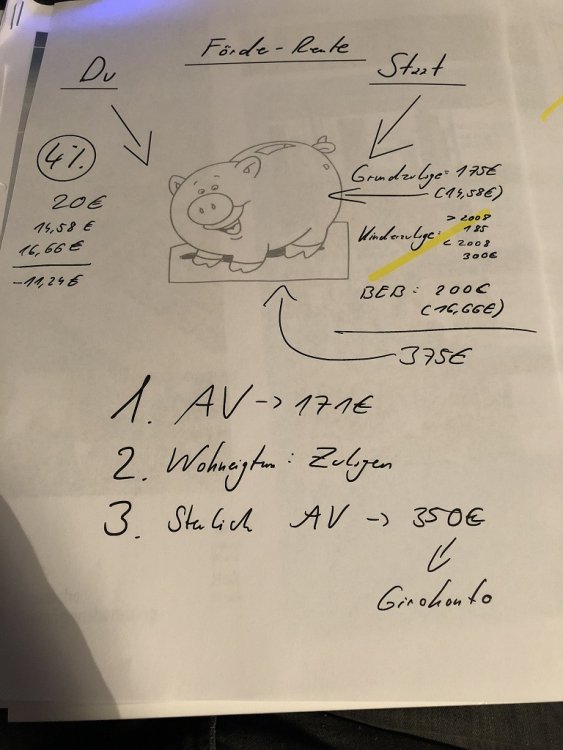 Förde-Rente
Du
Staat
4%
20€
14,58 €
16,66 €
-11,24€
Grundzulage: 175€
(14,58€)
> 2008
Kinderzulage: 185
< 2008
300€
BEB: 200€
(16,66€)
375€
1. AV -> 171€
2. Wohneigtum: Zulagen
3. Sterlich AV -> 350€
Girokonto